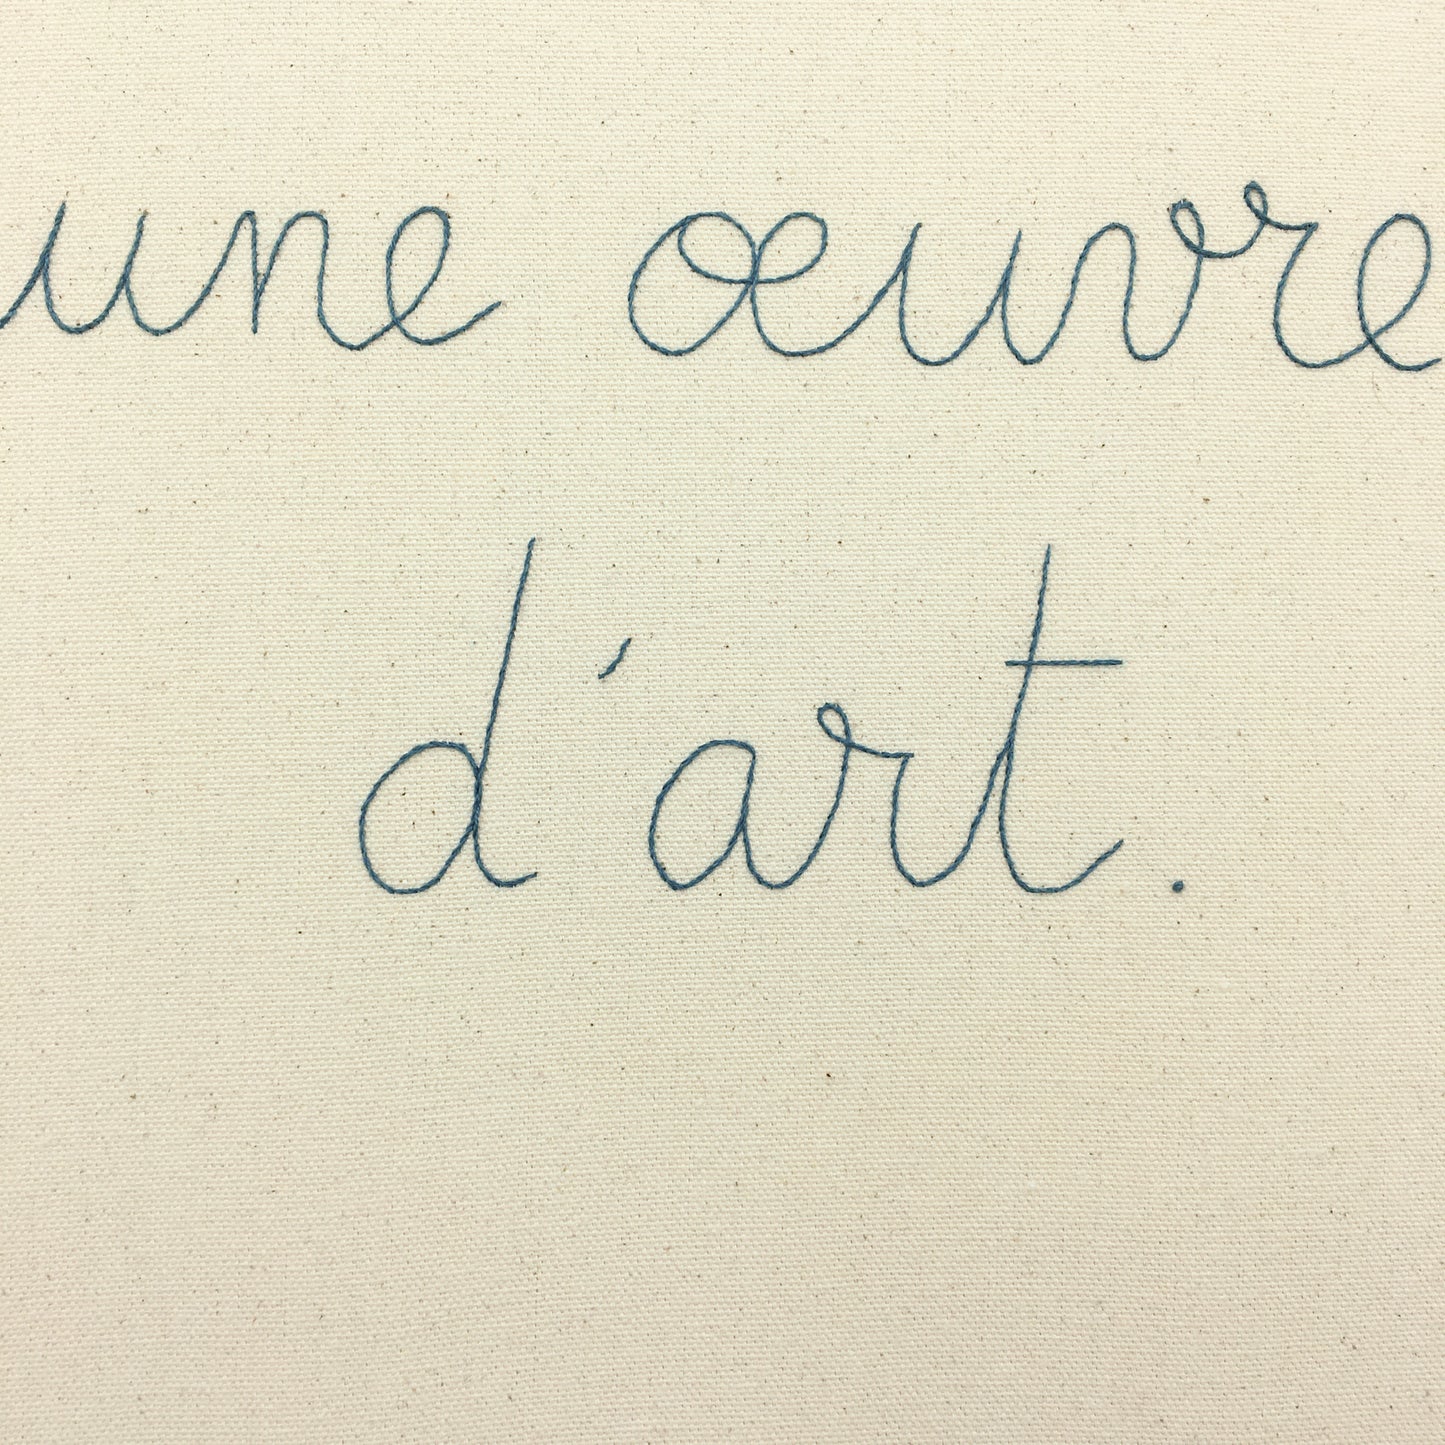 une œuvre
d'art.